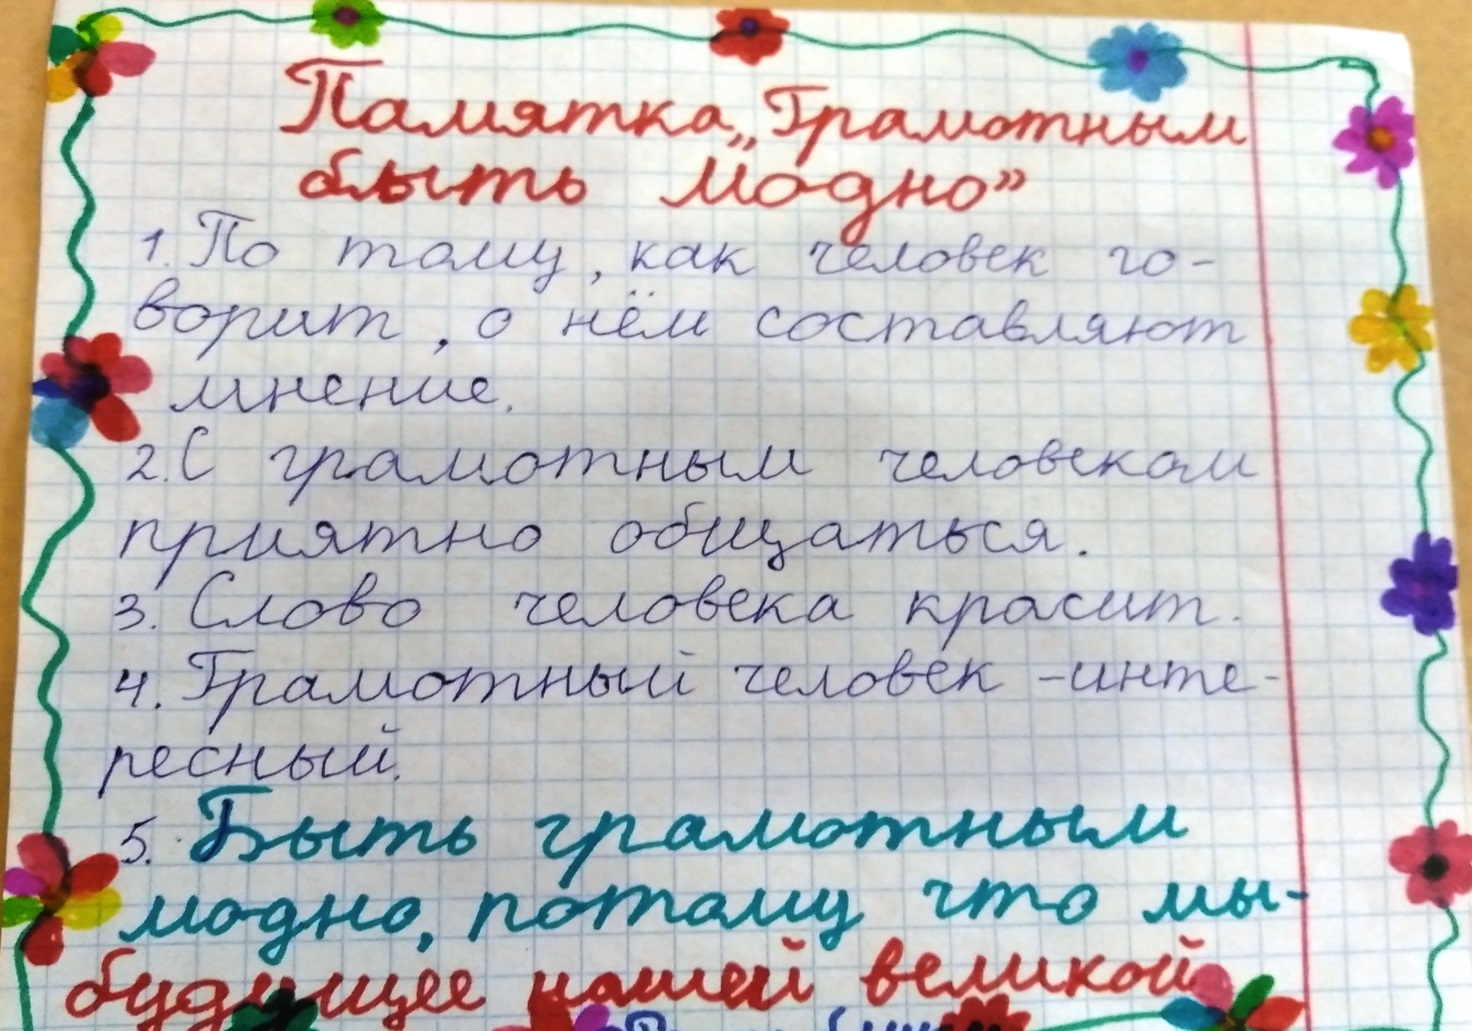 Памятка „Грамотным
быть модно”
1. По тому, как человек го-
ворит, о нём составляют
мнение.
2. С грамотным человеком
приятно общаться.
3. Слово человека красит.
4. Грамотный человек - инте-
ресный.
5. Быть грамотным
модно, потому что мы-
будущее нашей великой